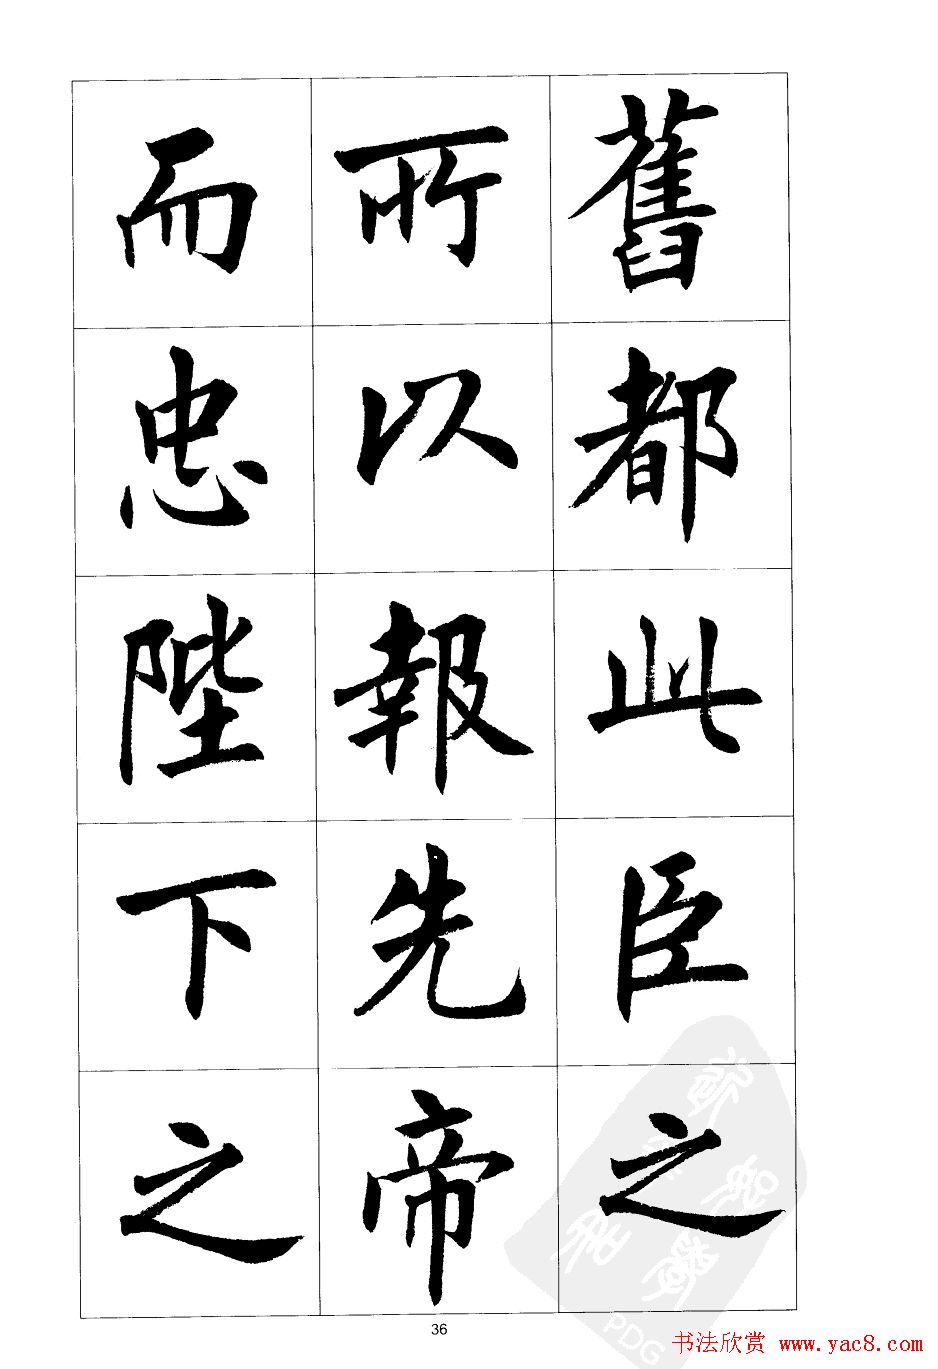 舊都此臣之
所以報先帝
而忠陛下之
36
书法欣赏 www.yac8.com
PDG